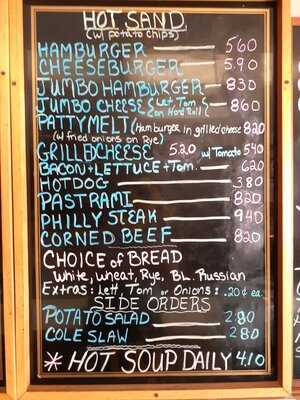 HOT SAND.
(w/ potato chips)
HAMBURGER 560
CHEESEBURGER 5.90
JUMBO HAMBURGER 830
JUMBO CHEESE {Let Tom on Hard Roll{ 860
PATTYMELT (Hamburger in grilled cheese 820
(w/ fried onions on Rye)
GRILLED CHEESE 5.20 w/ Tomato 540
BACON+LETTUCE+TOM. 620
HOTDOG 380
PASTRAMI 820
PHILLY STEAK 940
CORNED BEEF 820
CHOICE of BREAD
White, wheat, Rye, BL. Russian
Extras: Lett, Tom or Onions: .20¢ ea.
SIDE ORDERS
POTATO SALAD 2.80
COLE SLAW 2.80
* HOT SOUP DAILY 4.10